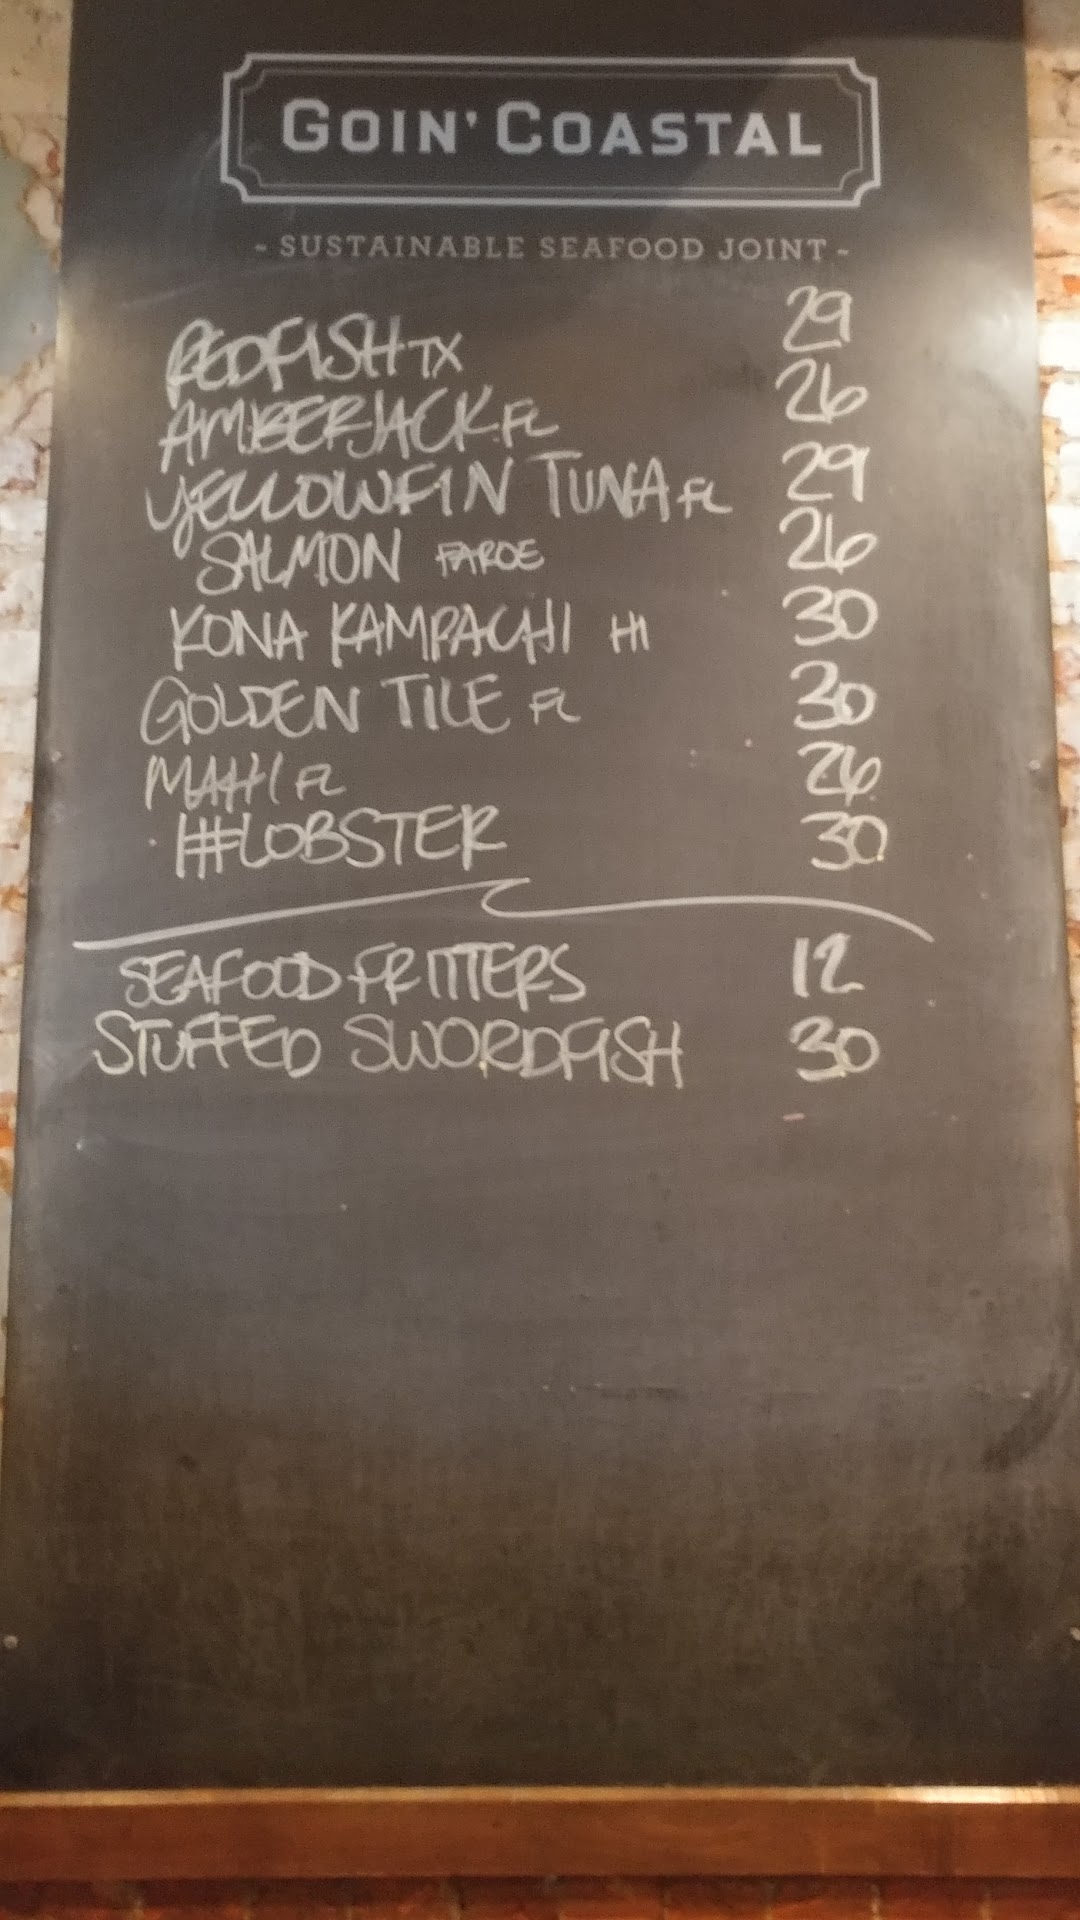 GOIN' COASTAL
- SUSTAINABLE SEAFOOD JOINT -
REDFISH TX 29
AMBERJACK FL 26
YELLOWFIN TUNA FL 29
SALMON FAROE 26
KONA KAMPACHI HI 30
GOLDEN TILE FL 30
MAHI FL 26
1# LOBSTER 30
SEAFOOD FRITTERS 12
STUFFED SWORDFISH 30